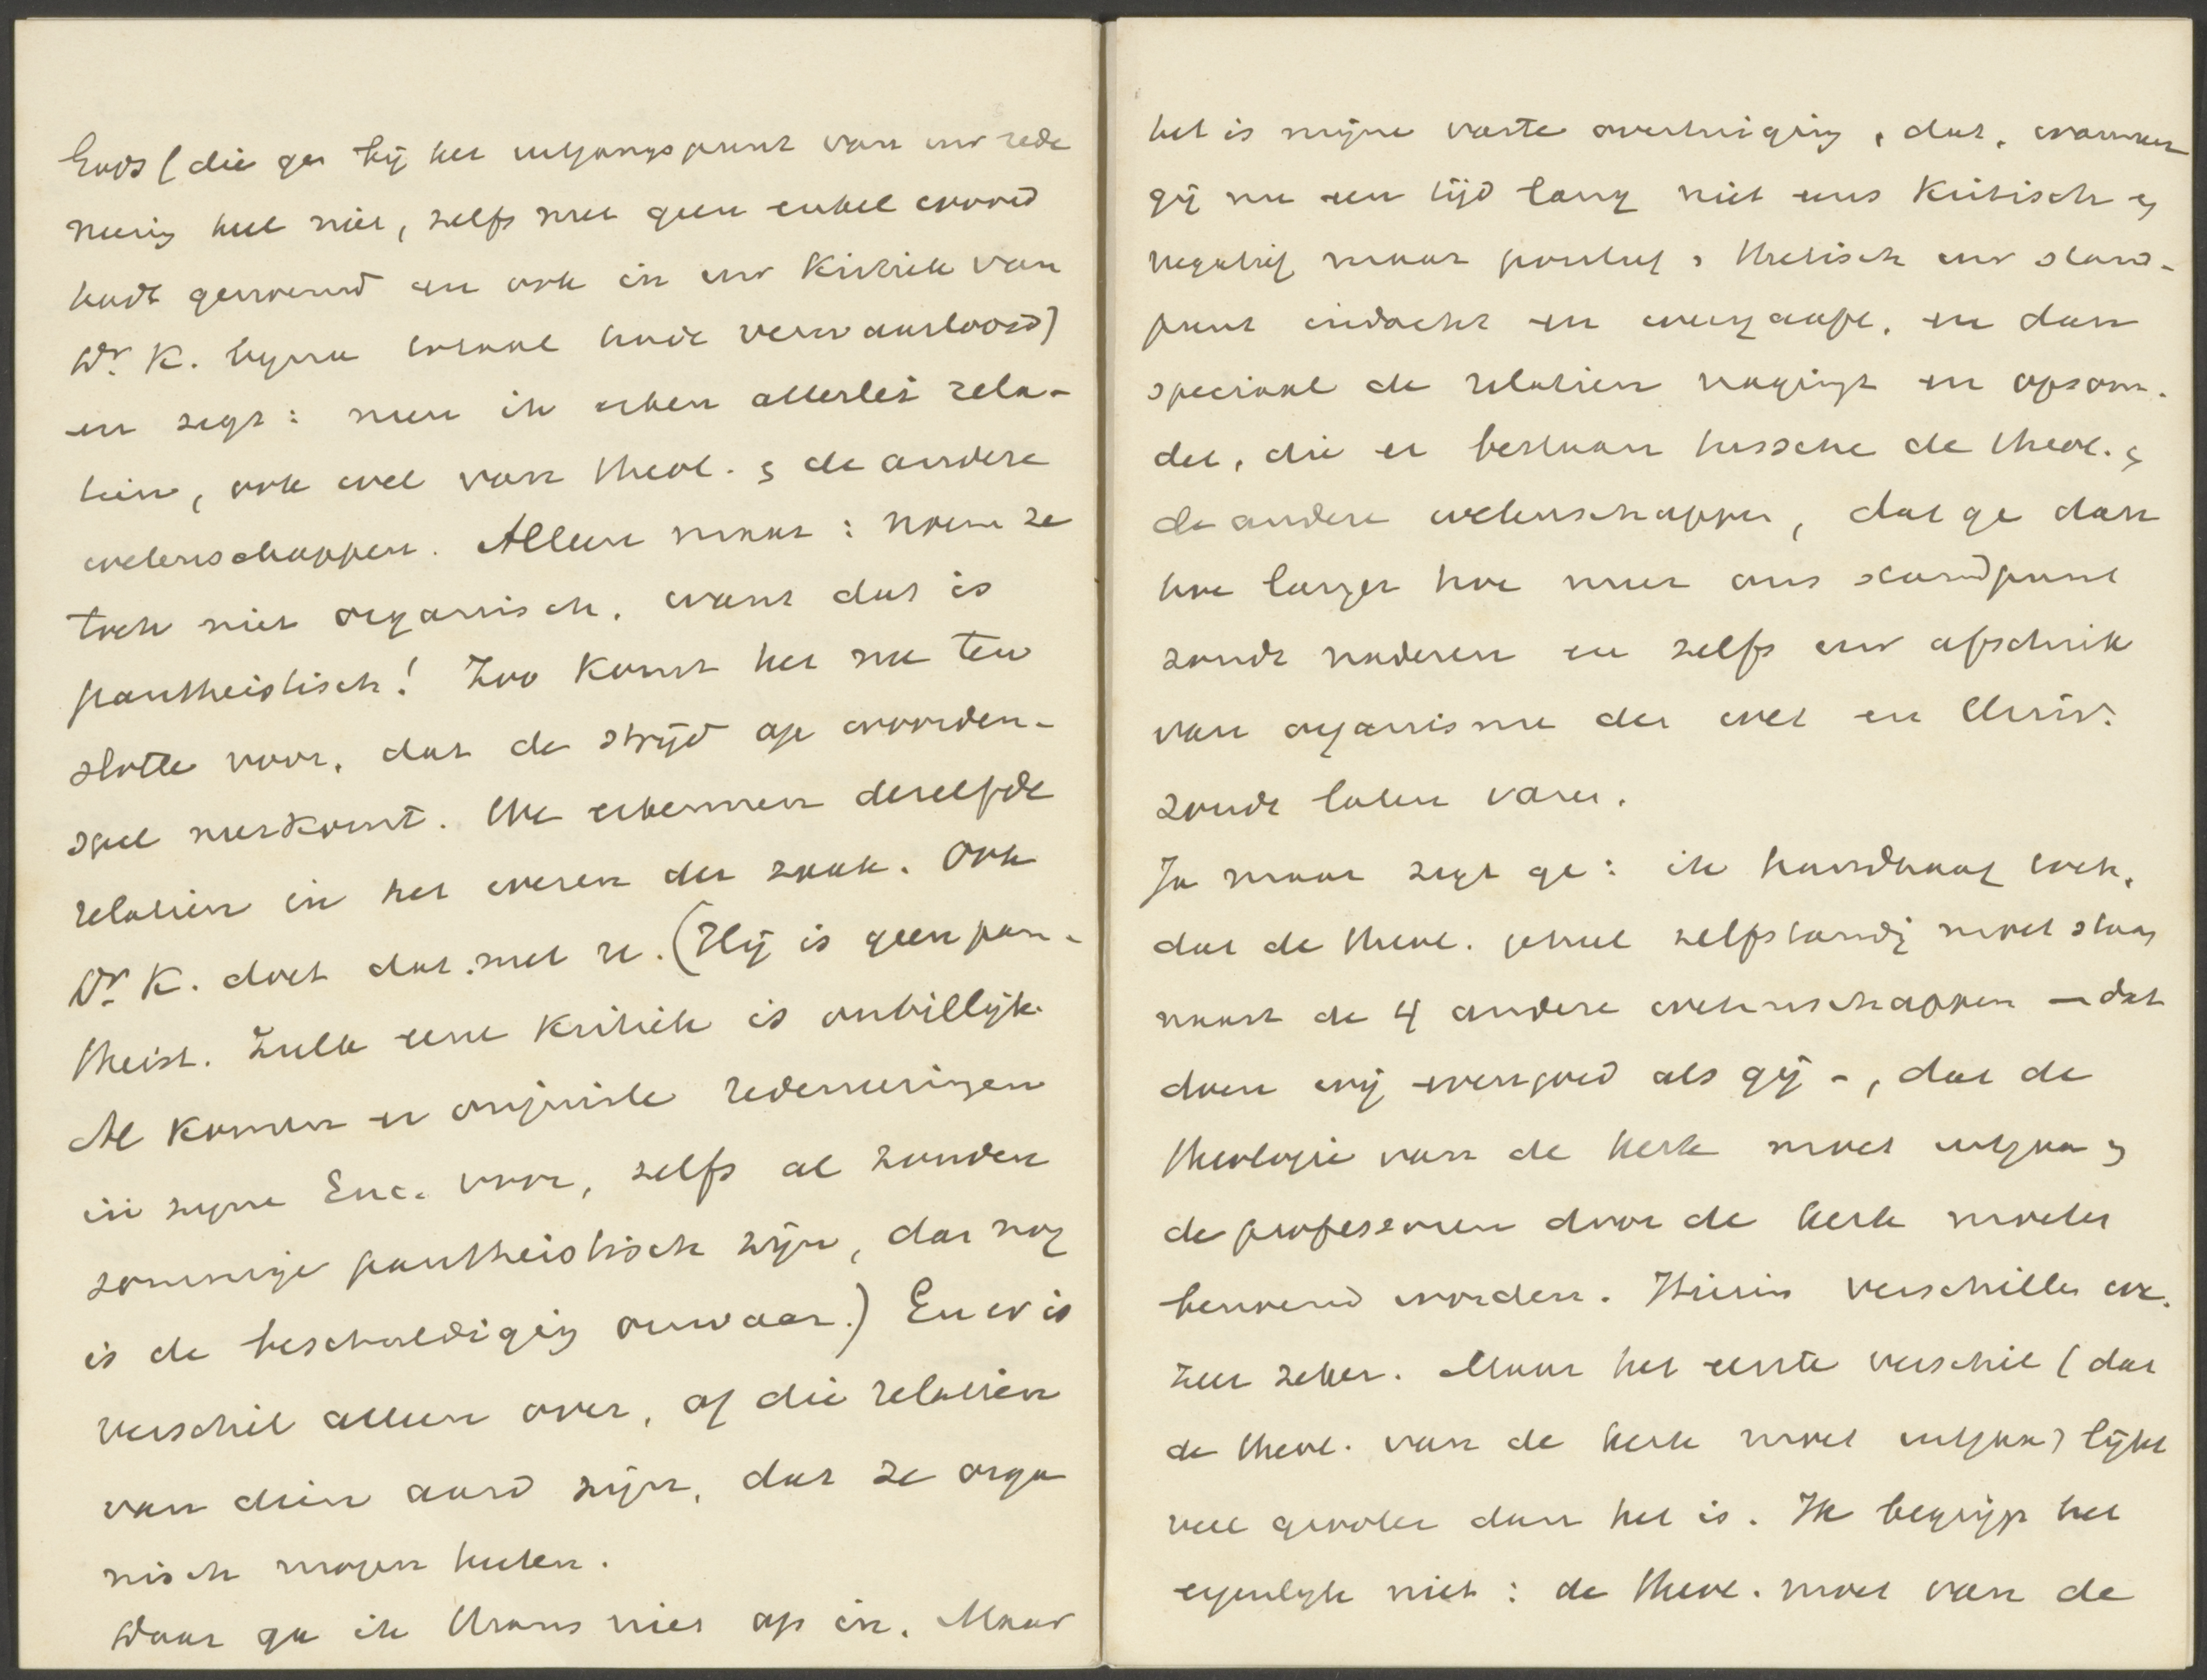 Gods (die ge bij het uitgangspunt van uw rede
neering heel niet, zelfs met geen enkel woord
hadt genoemd en ook in uw Kritiek van
Dr. K. bijna totaal hadt verwaarloosd)
en zegt: neen ik erken allerlei rela-
tiën, ook wel van theol. & de andere
wetenschappen. Alleen maar: noem ze
toch niet organisch, want dat is
pantheistisch! Zoo komt het me ten
slotte voor, dat de strijd op woorden-
spel neerkomt. We erkennen dezelfde
relatiën in het wezen der zaak. Ook
Dr. K. doet dat met u. (Hij is geen pan-
theist. Zulk eene Kritiek is onbillijk.
Al komen er onjuiste redeneeringen
in zijne Enc. voor, zelfs al zouden
sommige pantheistisch zijn, dan nog
is de beschuldiging onwaar.) En er is
verschil alleen over, of die relatiën
van dien aard zijn, dat ze orga
nisch mogen heeten.
Daar ga ik thans niet op in. Maar
het is mijne vaste overtuiging, dat, wanneer
gij nu een tijd lang niet eens Kritisch &
negatief maar positief & thetisch uw stand-
punt indacht en weergaaft, en dan
speciaal de relatiën nagingt en opsom.
det, die er bestaan tussche de theol. &
de andere wetenschappen, dat ge dan
hoe langer hoe meer ons standpunt
zoudt naderen en zelfs uw afschrik
van organisme der wet en Univ.
zoudt laten varen.
Ja maar zegt ge: ik handhaaf toch,
dat de theol. geheel zelfstandig moet staan
naast de 4 andere wetenschappen - dat
doen wij evengoed als gij -, dat de
theologie van de kerk moet uitgaan &
de professoren door de kerk moeten
benoemd worden. Hierin verschillen we.
zeer zeker. Maar het eerste verschil (dat
de theol. van de kerk moet uitgaan) lijkt
veel grooter dan het is. Ik begrijp het
eigenlijk niet: de theol. moet van de